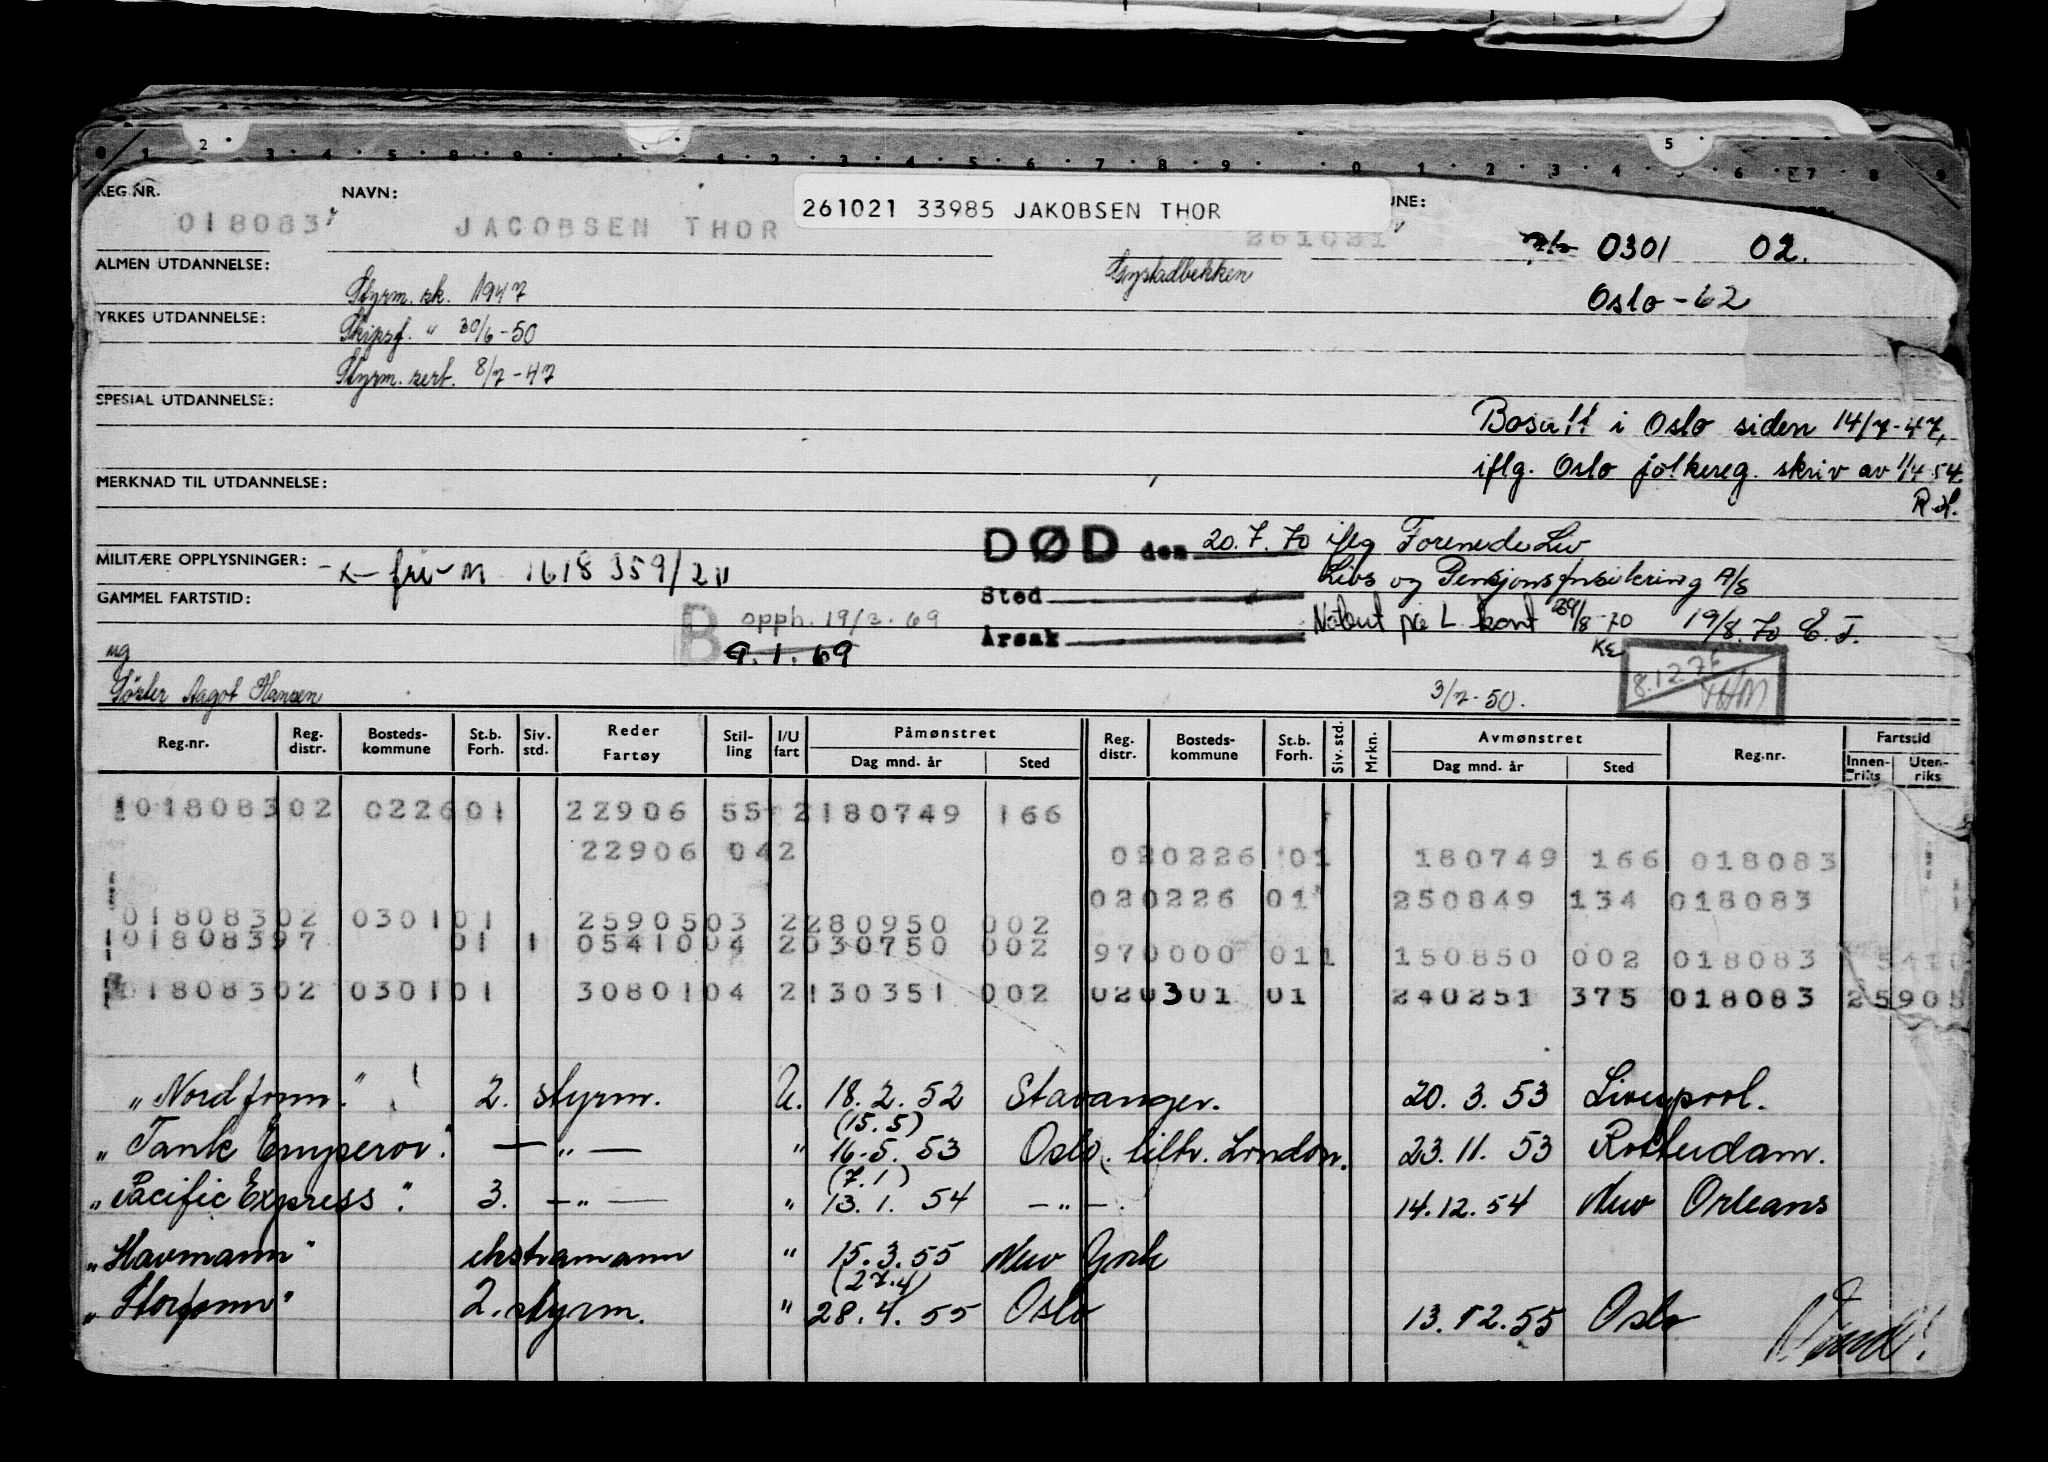 0 1 2 3 4 5 8 9 1 2 3 4 5 6 7 8 9 0 1 2 3 4 5 6 7 8 9
REG NR. NAVN: 261021 33985 JAKOBSEN THOR UNE:
018083 JACOBSEN THOR 261021 0301 02.
ALMEN UTDANNELSE: Styrm. sk. 1947 Gystadbekken Oslo - 62
YRKES UTDANNELSE: Skipsf. " 30/6 - 50
Styrm. sert. 8/7 - 47
SPESIAL UTDANNELSE: Bosatt i Oslo siden 14/7-47,
MERKNAD TIL UTDANNELSE: iflg. Oslo folkereg. skriv av 1/4 54
DØD den 20.7.70 iflg Forenede Liv
MILITÆRE OPPLYSNINGER: fri - M 1618359/211 Livs og Pensjonsforsikring A/S
GAMMEL FARTSTID: Sted
B opph. 19/3. 69 Årsak Notert på L. kort 29/8-70 19/8. 70 E. T.
ug 9.1.69 KE
Søster Aagot Hansen 3/7-50. 8.12.76
Reg.nr. Reg. distr. Bosteds-kommune St.b. Forh. Siv. std. Reder Fartøy Stil-ling I/U fart Påmønstret Dag mnd. år Sted Reg. distr. Bosteds-kommune St.b. Forh. Siv. std. Mrkn. Avmønstret Dag mnd. år Sted Reg.nr. Fartstid Innen-riks Uten-riks
01808302 022601 22906 55 2180749 166
22906 042 020226 01 180749 166 018083
020226 01 250849 134 018083
01808302 030101 2590503 2280950 002
01808397 01 1 0541004 2030750 002 970000 011 150850 002 018083
01808302 030101 3080104 2130351 002 020301 01 240251 375 018083 25905
"Nordfonn" 2. styrm. U. 18.2.52 Stavanger. 20.3.53 Liverpool.
(15.5)
"Tank Emperor". — " — " 16.5.53 Oslo. tiltr. London. 23.11.53 Rotterdam.
(7.1)
"Pacific Express". 3. — " — " 13.1.54 — " — . 14.12.54 New Orleans
"Havmann" ekstramann " 15.3.55 New York
(27.4)
"Storfonn" 2. styrm. " 28.4.55 Oslo 13.12.55 Oslo
Vend!